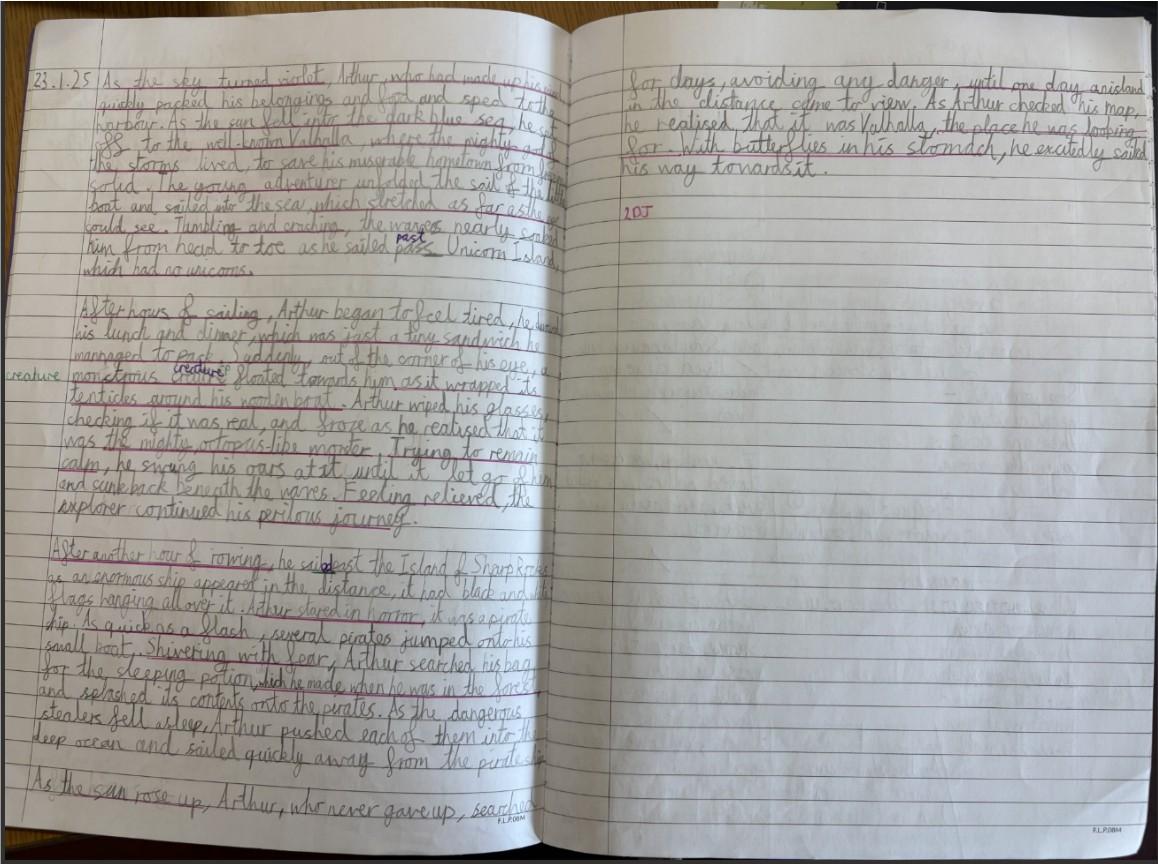 23.1.25 As the sky turned violet, Arthur, who had made up his
quickly packed his belongings and food and sped to the
harbour. As the sun fell into the dark blue sea, he set
off to the well-known Valhalla, where the mighty gods
the storms lived, to save his miserable hometown from
solid. The young adventurer unfolded the sail of the little
boat and sailed into the sea, which stretched as far as the eye
could see. Tumbling and crashing, the waves nearly soaked
past
him from head to toe as he sailed pass Unicorn Island,
which had no unicorns.
After hours of sailing, Arthur began to feel tired, he
his lunch and dinner, which was just a tiny sandwich he
mannaged to pack. Suddenly, out of the corner of his eye, a
creature
creature monstrous floated towards him, as it wrapped its
tenticles around his wooden boat. Arthur wiped his glasses,
checking if it was real, and froze as he realised that it
was the mighty, octopus-like monster. Trying to remain
calm, he swung his oars at it until it let go of him
and sunk back beneath the waves. Feeling relieved, the
explorer continued his perilous journey.
After another hour of rowing, he sailed past the Island of Sharp Rocks
as an enormous ship appeared in the distance, it had black and white
flags hanging all over it. Arthur stared in horror, it was a pirate
ship. As quick as a flash, several pirates jumped onto his
small boat. Shivering with fear, Arthur searched his bag
for the sleeping potion, which he made when he was in the forest
and splashed its contents onto the pirates. As the dangerous
stealers fell asleep, Arthur pushed each of them into the
deep ocean and sailed quickly away from the pirate ship.
As the sun rose up, Arthur, who never gave up, searched
F.L.P.DBM
for days, avoiding any danger, until one day an island
in the distance came to view. As Arthur checked his map,
he realised that it was Valhalla, the place he was looping
for. With butterflies in his stomach, he excitedly sailed
his way towards it.
2DJ
F.L.P.DBM